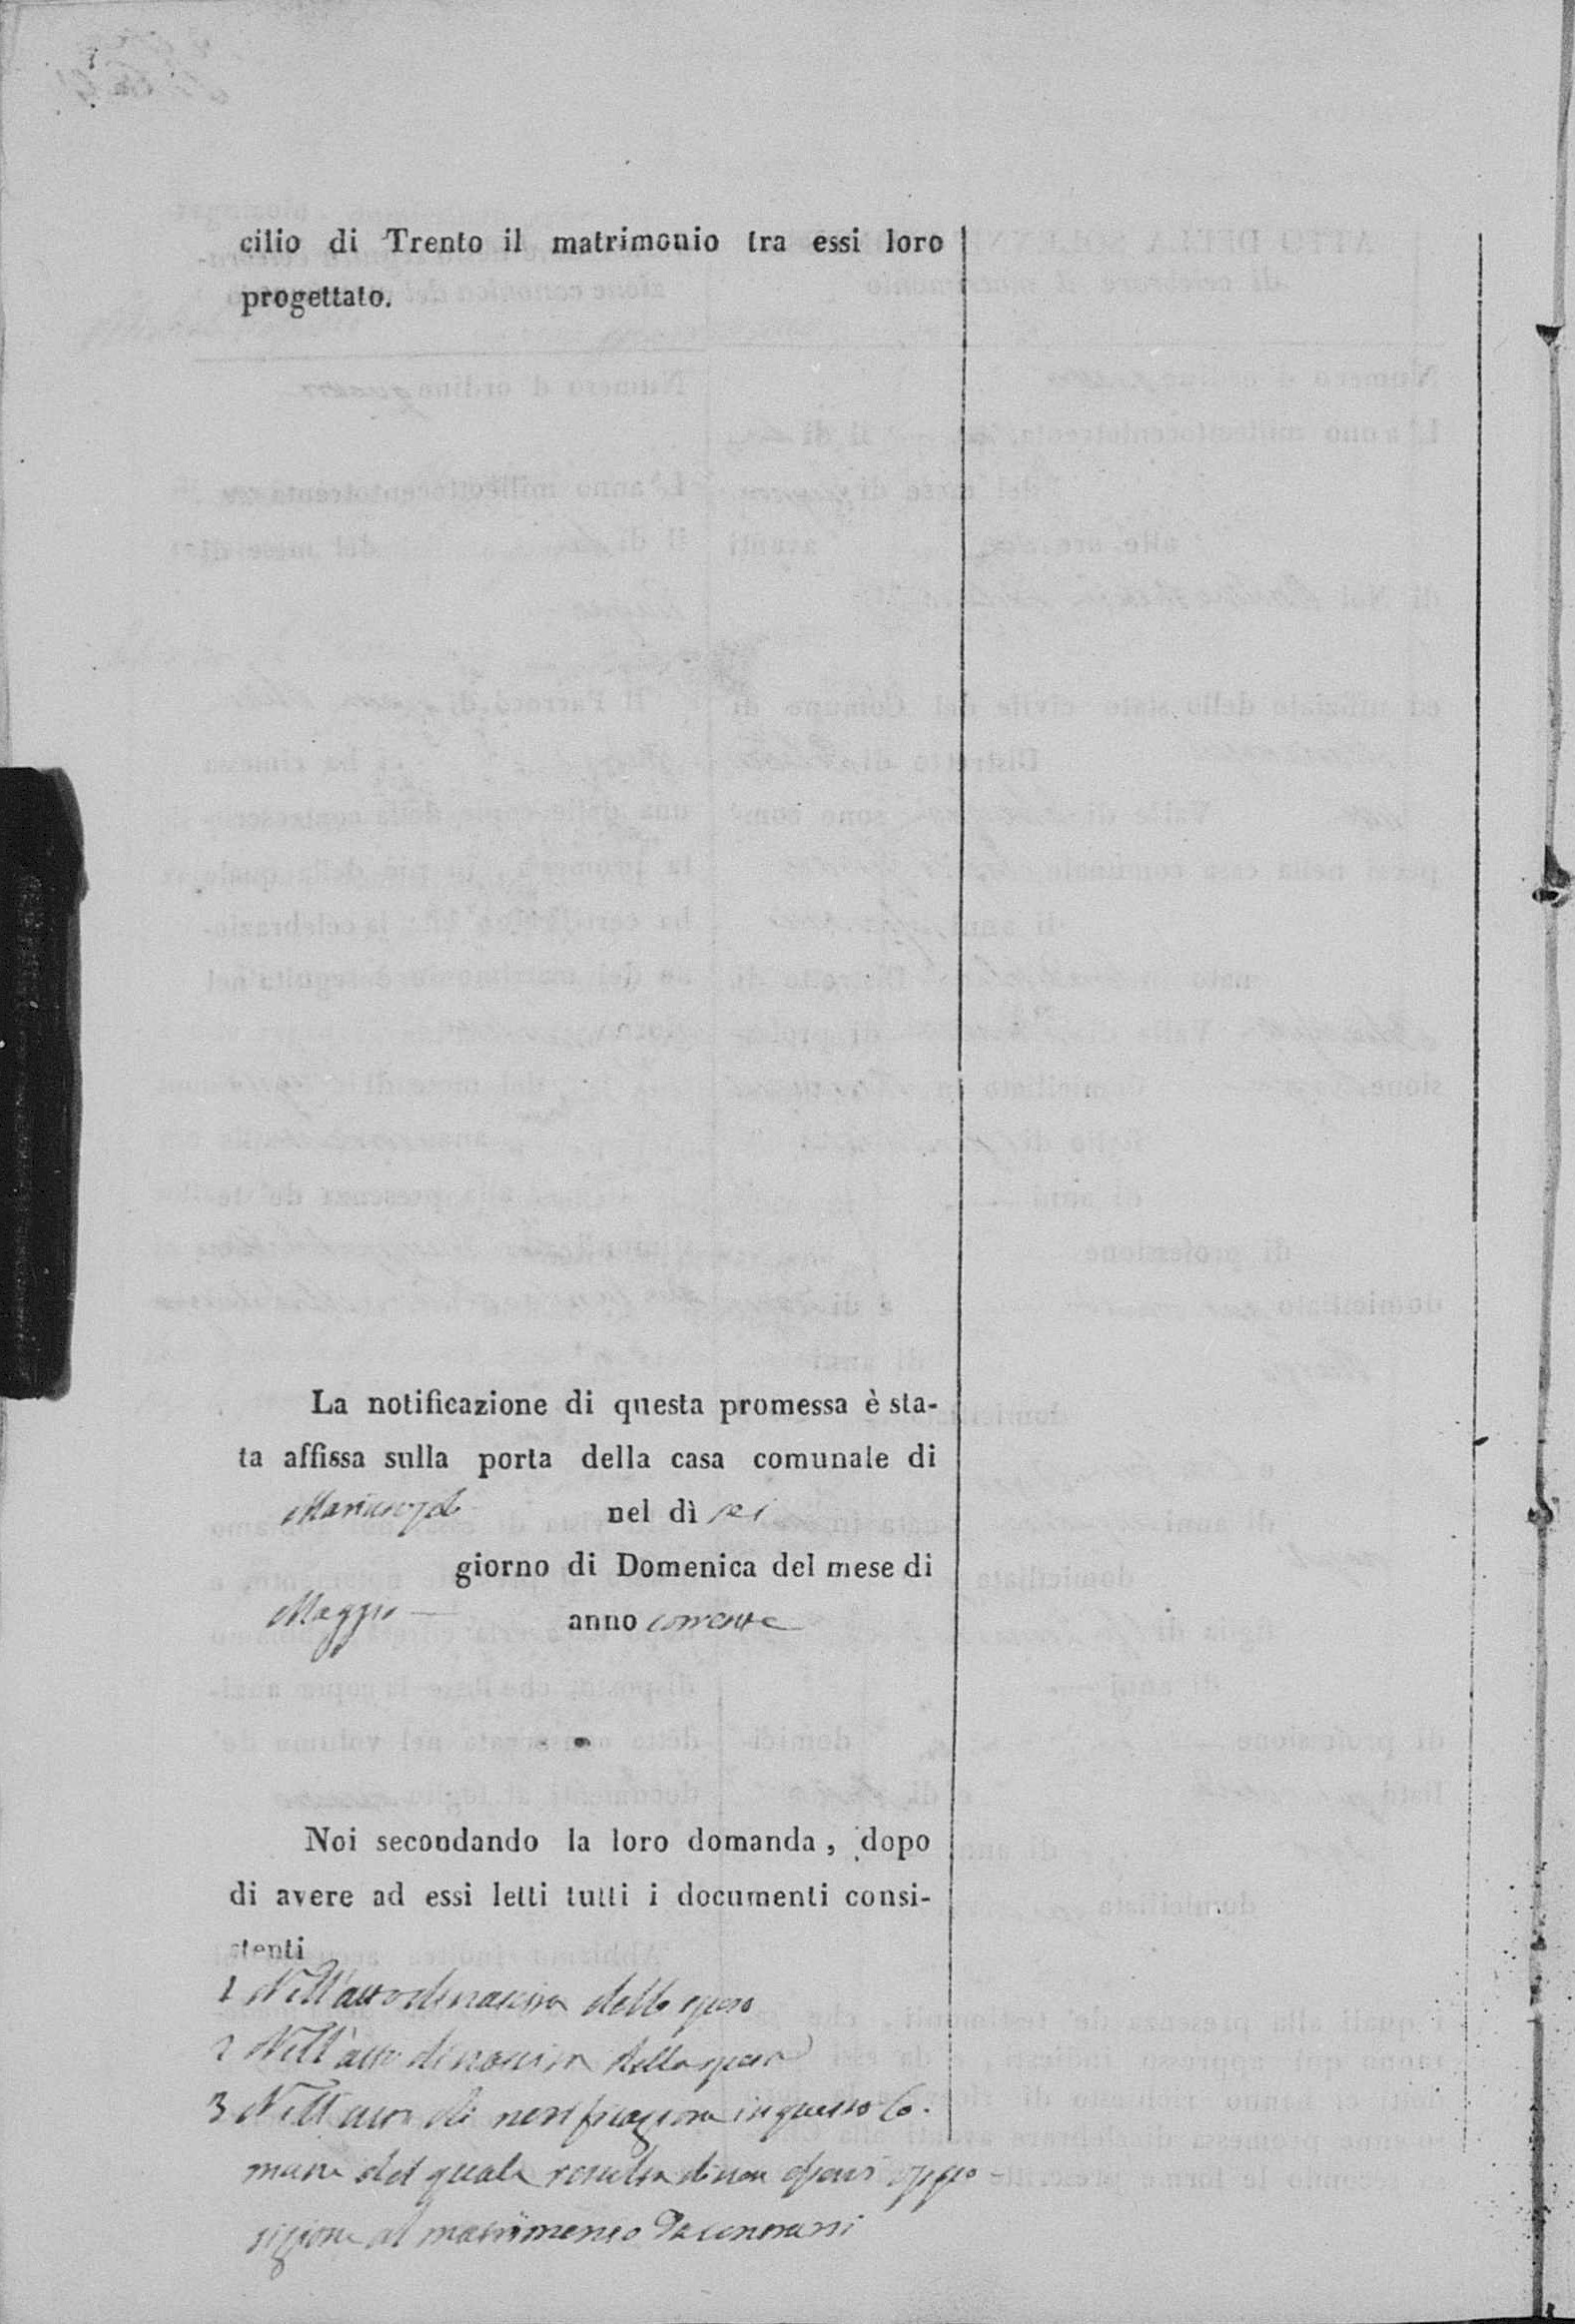 cilio di Trento il matrimonio tra essi loro
progettato.
La notificazione di questa promessa è sta-
ta affissa sulla porta della casa comunale di
nel dì sei
giorno di Domenica del mese di
Maggio anno corrente
Noi secondando la loro domanda, dopo
di avere ad essi letti tutti i documenti consi-
stenti
1 Nell'atto di nascita dello sposo
2 Nell'atto di nascita della sposa
3 Nell'atto di notificazione in questo Co-
mune dal quale risulta di non esservi oppo-
sizione al matrimonio da contrarsi